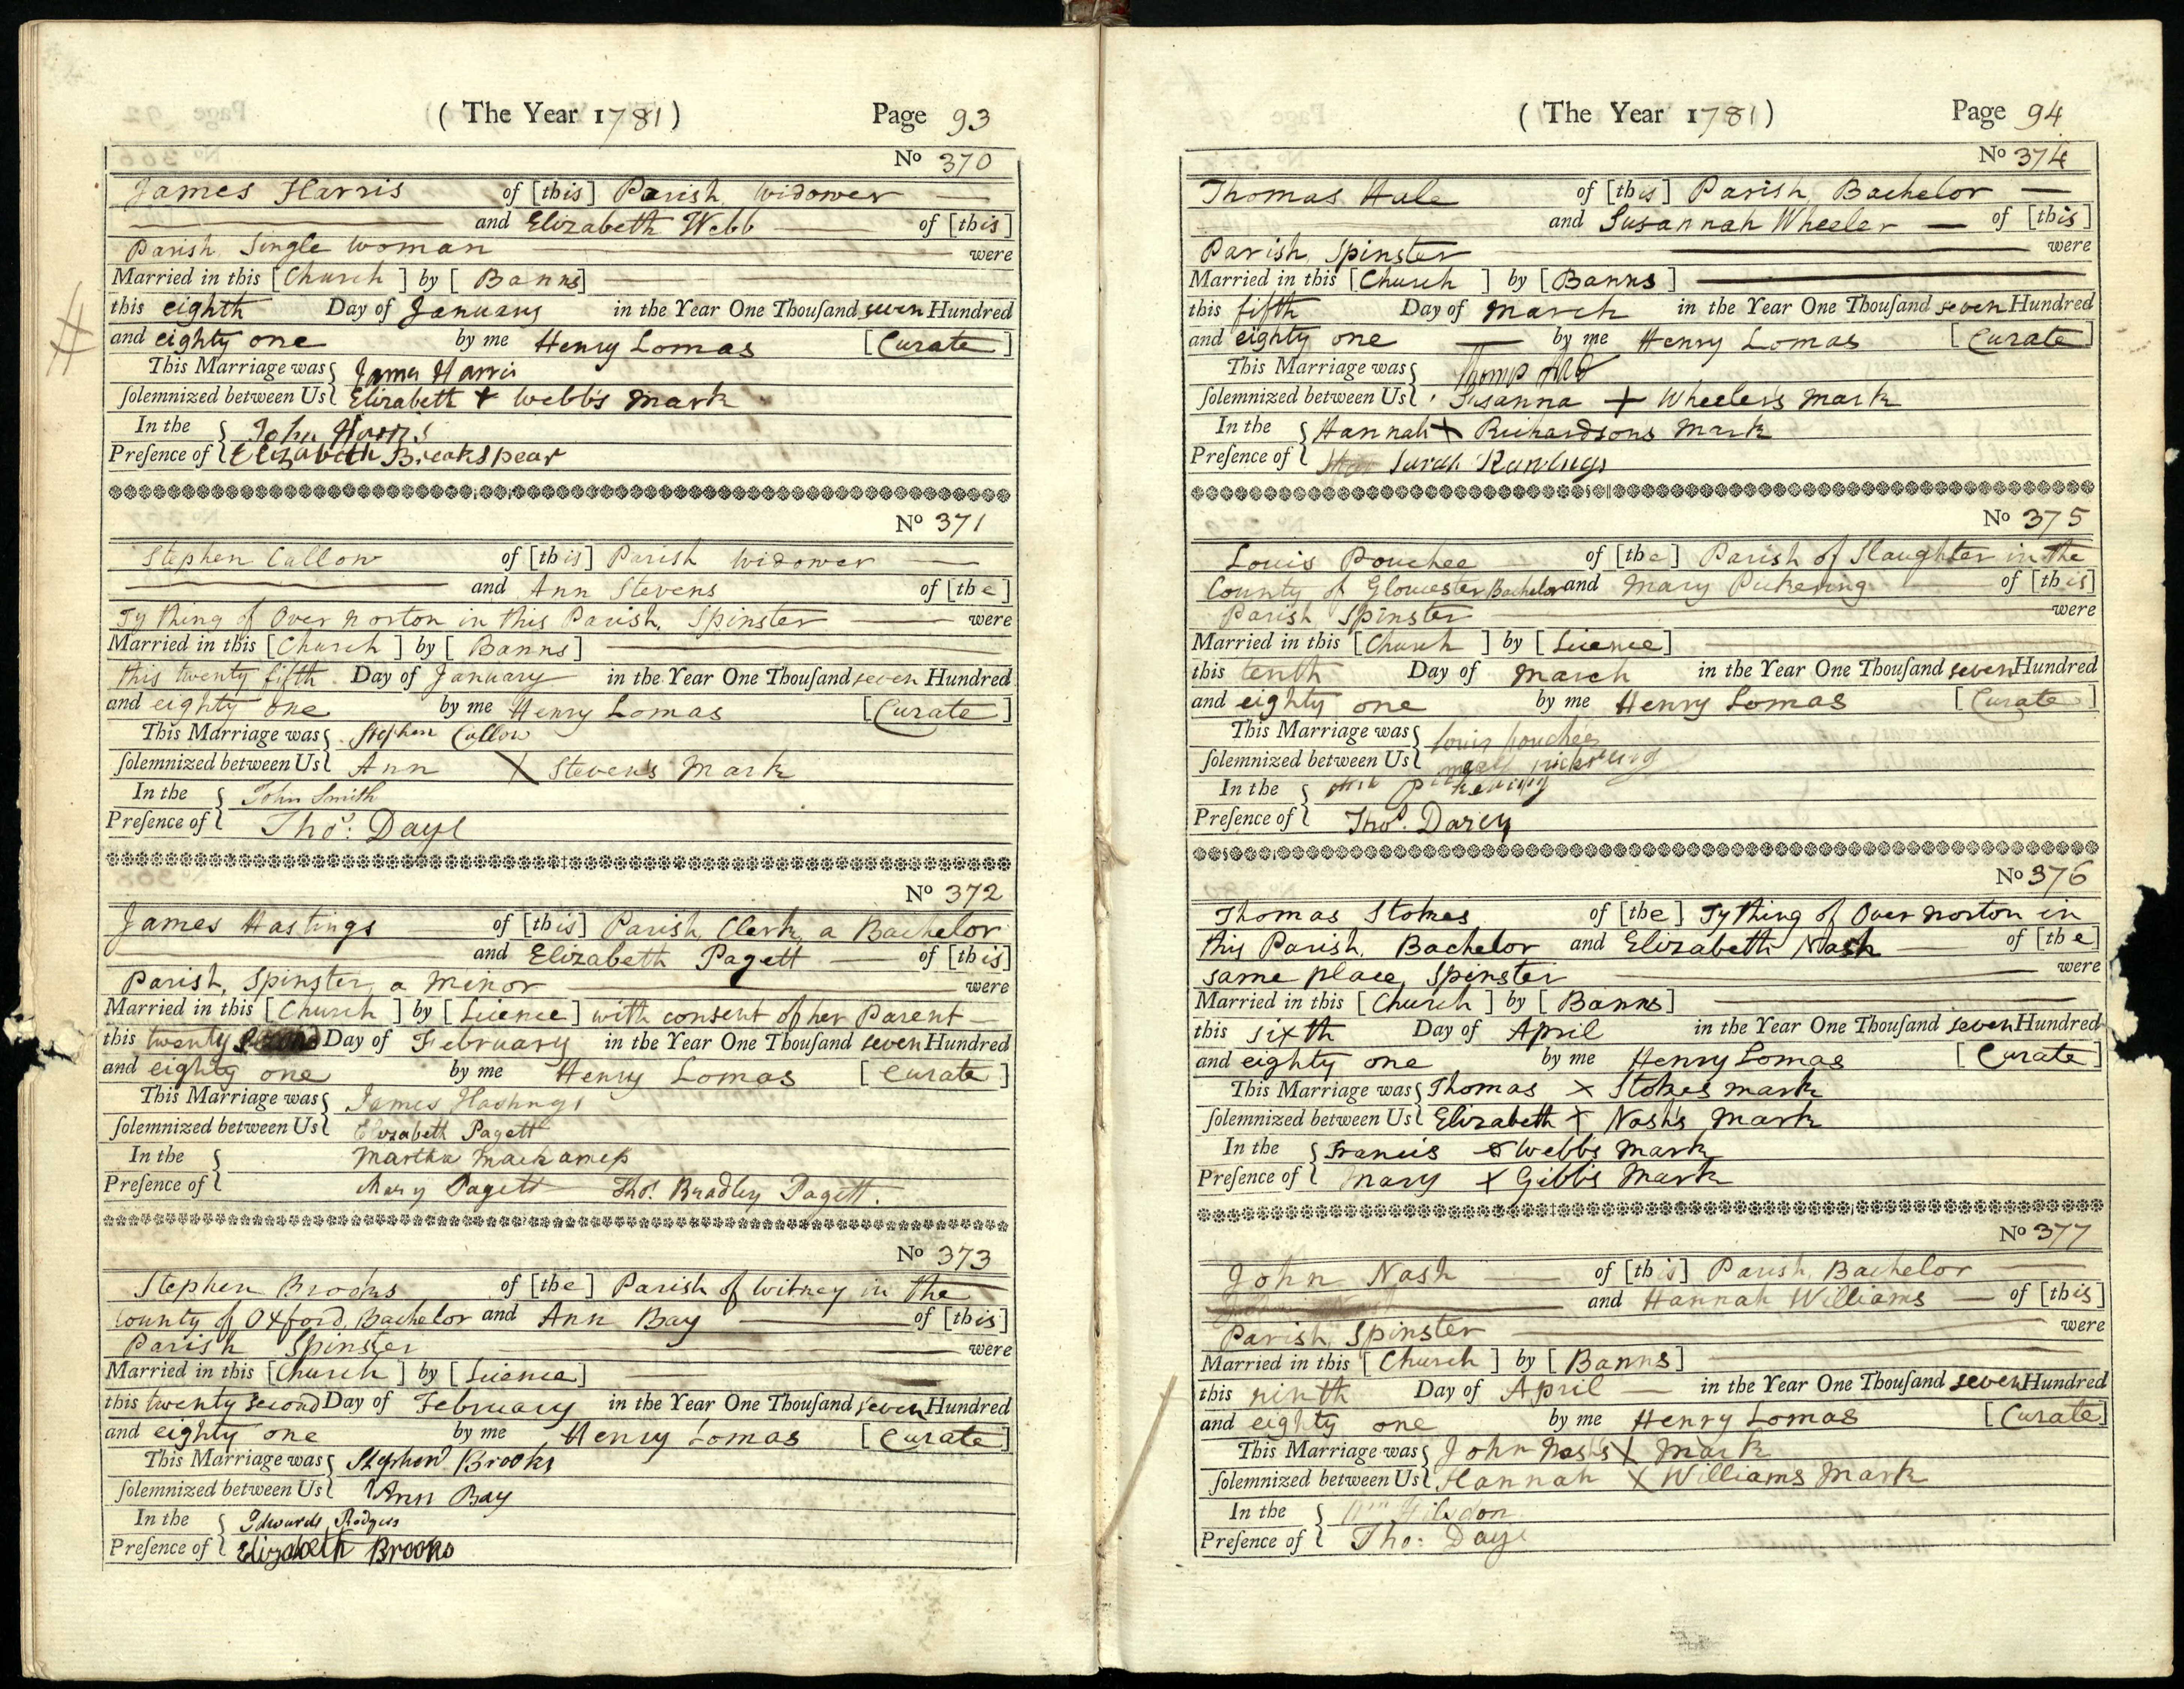 ( The Year 1781 ) Page 93
No 370
James Harris of [this] Parish, widower
and Elizabeth Webb of [this]
Parish, Single woman were
Married in this [Church] by [Banns]
this eighth Day of January in the Year One Thouſand seven Hundred
and eighty one by me Henry Lomas [Curate]
This Marriage was James Harris
ſolemnized between Us Elizabeth + Webb's Mark
In the John Harris
Preſence of Elizabeth Breakspear
No 371
Stephen Callow of [this] Parish widower
and Ann Stevens of [the]
Tything of Over Norton in this Parish, Spinster were
Married in this [Church] by [Banns]
this twenty fifth Day of January in the Year One Thouſand seven Hundred
and eighty one by me Henry Lomas [Curate]
This Marriage was Stephen Callow
ſolemnized between Us Ann X Stevens Mark
In the John Smith
Preſence of Thos: Days
No 372
James Hastings of [this] Parish, Clerk, a Bachelor
and Elizabeth Pagett of [this]
Parish, Spinster, a Minor were
Married in this [Church] by [Licence] with consent of her Parent
this twenty second Day of February in the Year One Thouſand seven Hundred
and eighty one by me Henry Lomas [Curate]
This Marriage was James Hastings
ſolemnized between Us Elizabeth Pagett
In the Martha
Preſence of Mary Pagett Thos. Bradley Pagett.
No 373
Stephen Brooks of [the] Parish of Witney in the
County of Oxford, Bachelor and Ann Bay of [this]
Parish Spinster were
Married in this [Church] by [Licence]
this twenty second Day of February in the Year One Thouſand seven Hundred
and eighty one by me Henry Lomas [Curate]
This Marriage was Stephen Brooks
ſolemnized between Us Ann Bay
In the Edward Rodgers
Preſence of Elizabeth Brooks
( The Year 1781 ) Page 94
No 374
Thomas Hale of [this] Parish Bachelor
and Susannah Wheeler of [this]
Parish, Spinster were
Married in this [Church] by [Banns]
this fifth Day of March in the Year One Thouſand seven Hundred
and eighty one by me Henry Lomas [Curate]
This Marriage was
ſolemnized between Us Susanna + Wheeler's Mark
In the Hannah + Richardsons Mark
Preſence of Sarah Rawlings
No 375
Louis Pouchee of [the] Parish of Slaughter in the
County of Gloucester Bachelor and Mary Pickering of [this]
Parish Spinster were
Married in this [Church] by [Licence]
this tenth Day of March in the Year One Thouſand seven Hundred
and eighty one by me Henry Lomas [Curate]
This Marriage was louis pouchee
ſolemnized between Us mary pickering
In the
Preſence of Thos. Darcy
No 376
Thomas Stokes of [the] Tything of Over Norton in
this Parish, Bachelor and Elizabeth Nash of [the]
same place, Spinster were
Married in this [Church] by [Banns]
this sixth Day of April in the Year One Thouſand seven Hundred
and eighty one by me Henry Lomas [Curate]
This Marriage was Thomas X Stokes mark
ſolemnized between Us Elizabeth X Nash's Mark
In the Francis X Webb's Mark
Preſence of Mary X Gibb's Mark
No 377
John Nash of [this] Parish, Bachelor
and Hannah Williams of [this]
Parish, Spinster were
Married in this [Church] by [Banns]
this ninth Day of April in the Year One Thouſand seven Hundred
and eighty one by me Henry Lomas [Curate]
This Marriage was John Nash's X Mark
ſolemnized between Us Hannah X Williams Mark
In the
Preſence of Tho: Days